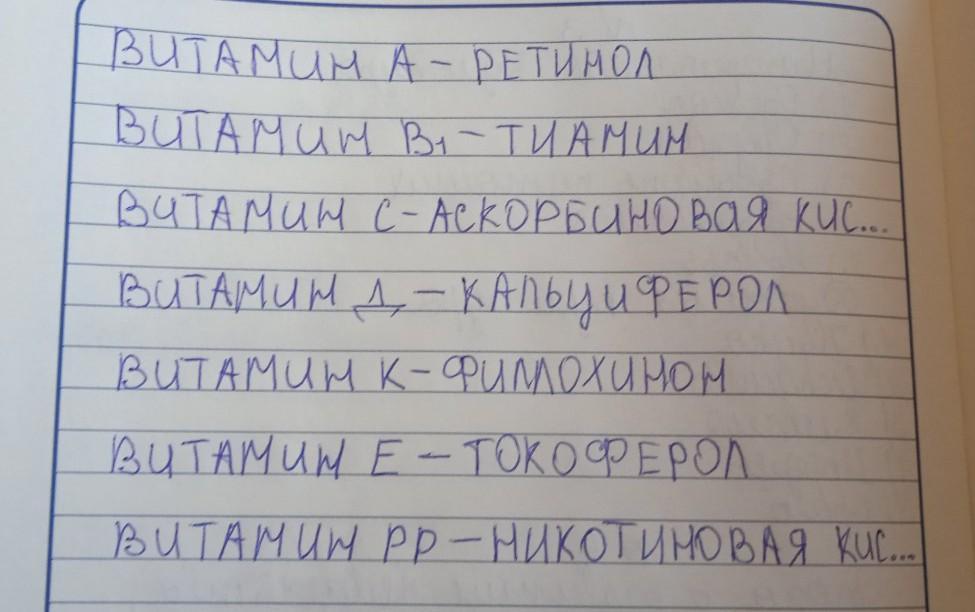 ВИТАМИН А - РЕТИНОЛ
ВИТАМИН В1 - ТИАМИН
ВИТАМИН С - АСКОРБИНОВАЯ КИС...
ВИТАМИН Д - КАЛЬЦИФЕРОЛ
ВИТАМИН К - ФИЛЛОХИНОН
ВИТАМИН Е - ТОКОФЕРОЛ
ВИТАМИН РР - НИКОТИНОВАЯ КИС...